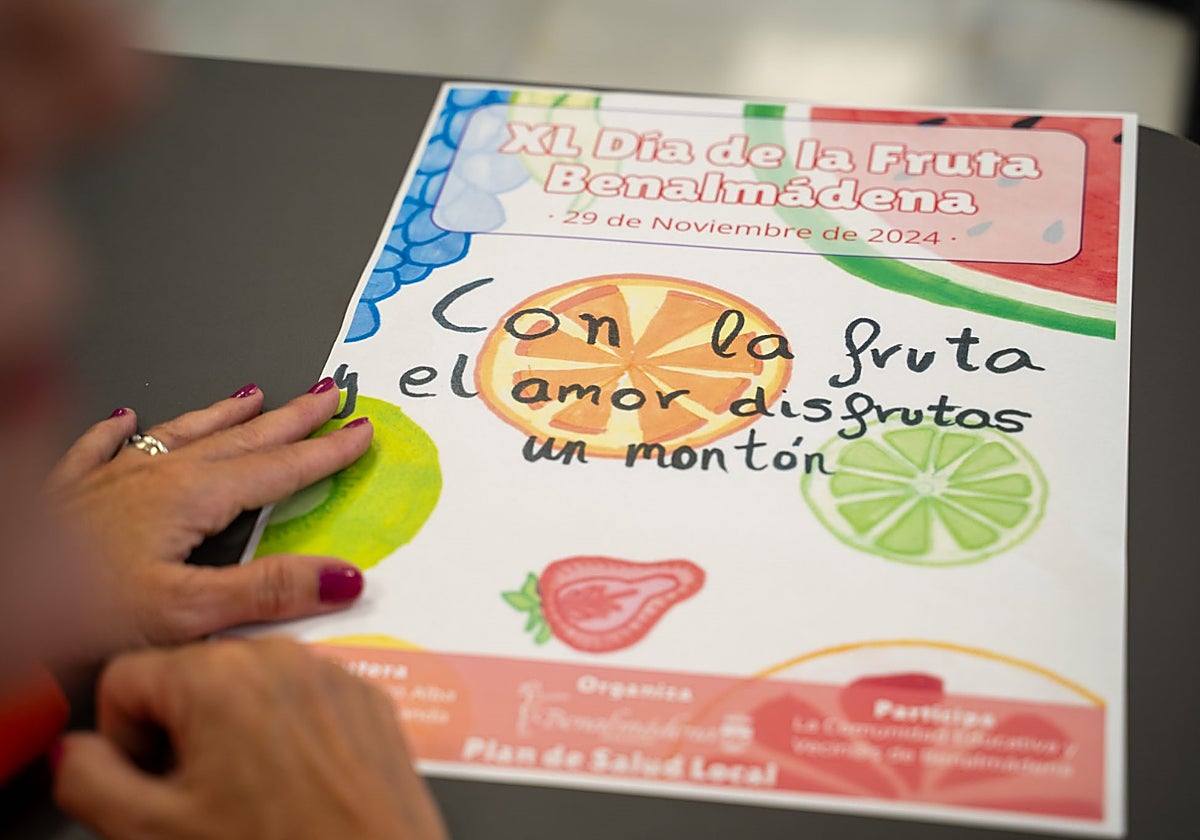 XL Día de la Fruta
Benalmádena
· 29 de Noviembre de 2024 ·
Con la fruta
y el amor disfrutas
un montón
Organiza
Benalmádena
Participa
La Comunidad Educativa y
Vecinos de Benalmádena
Plan de Salud Local